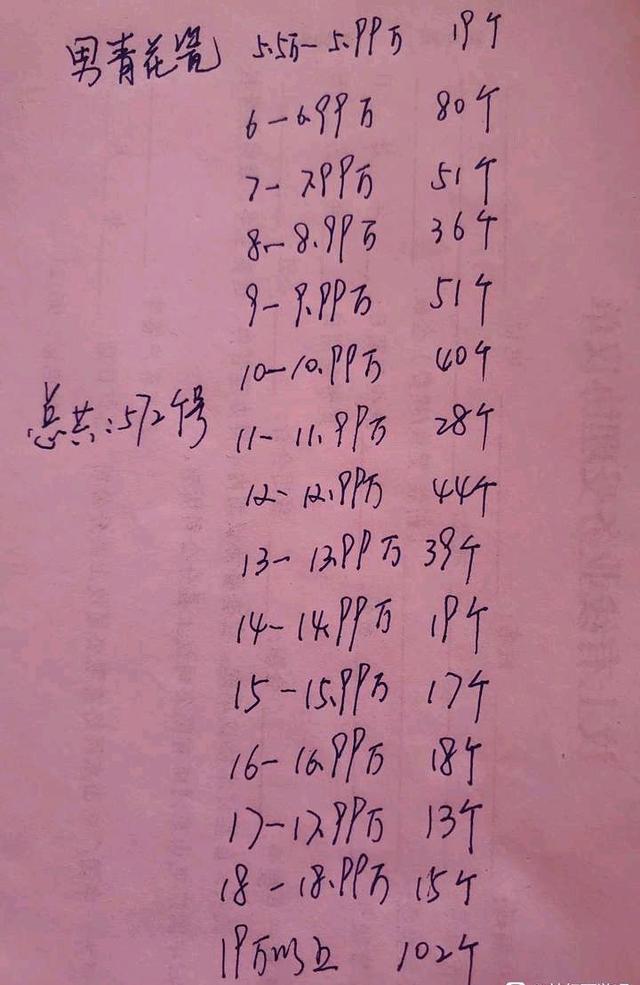 男青花瓷 5.5万-5.99万 19个
6-6.99万 80个
7-7.99万 51个
8-8.99万 36个
9-9.99万 51个
10-10.99万 40个
总共:572个号
11-11.99万 28个
12-12.99万 44个
13-13.99万 39个
14-14.99万 19个
15-15.99万 17个
16-16.99万 18个
17-17.99万 13个
18-18.99万 15个
19万以上 102个